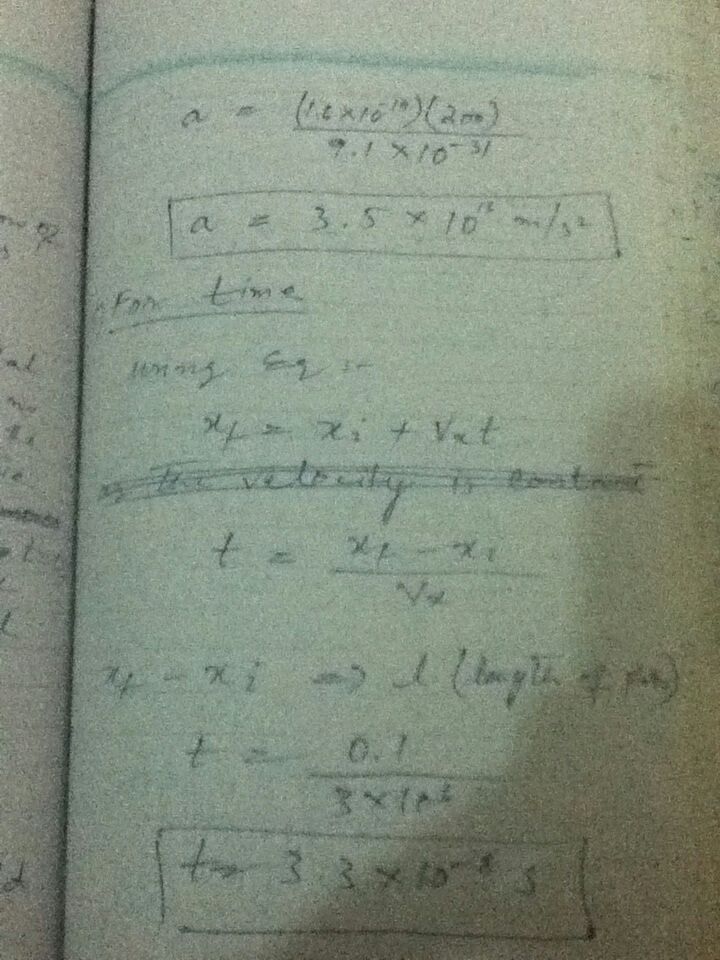 a = (1.6×10⁻¹⁹)(200) / 9.1 × 10⁻³¹
a = 3.5 × 10¹³ m/s²
For time
using Eq :-
x_f = x_i + V_x t
the velocity is constant
t = x_f - x_i / V_x
x_f - x_i ⇒ l (length of
t = 0.1 / 3×10⁶
t = 3.3×10⁻⁸ s